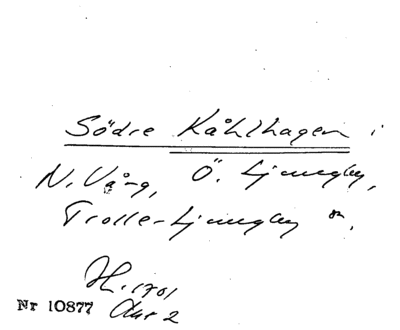 Södre Kåhlhagen i
N. Vång, Ö. Ljungby,
Trolle-Ljungby sn.
H. 1701
Akt 2
Nr 10877